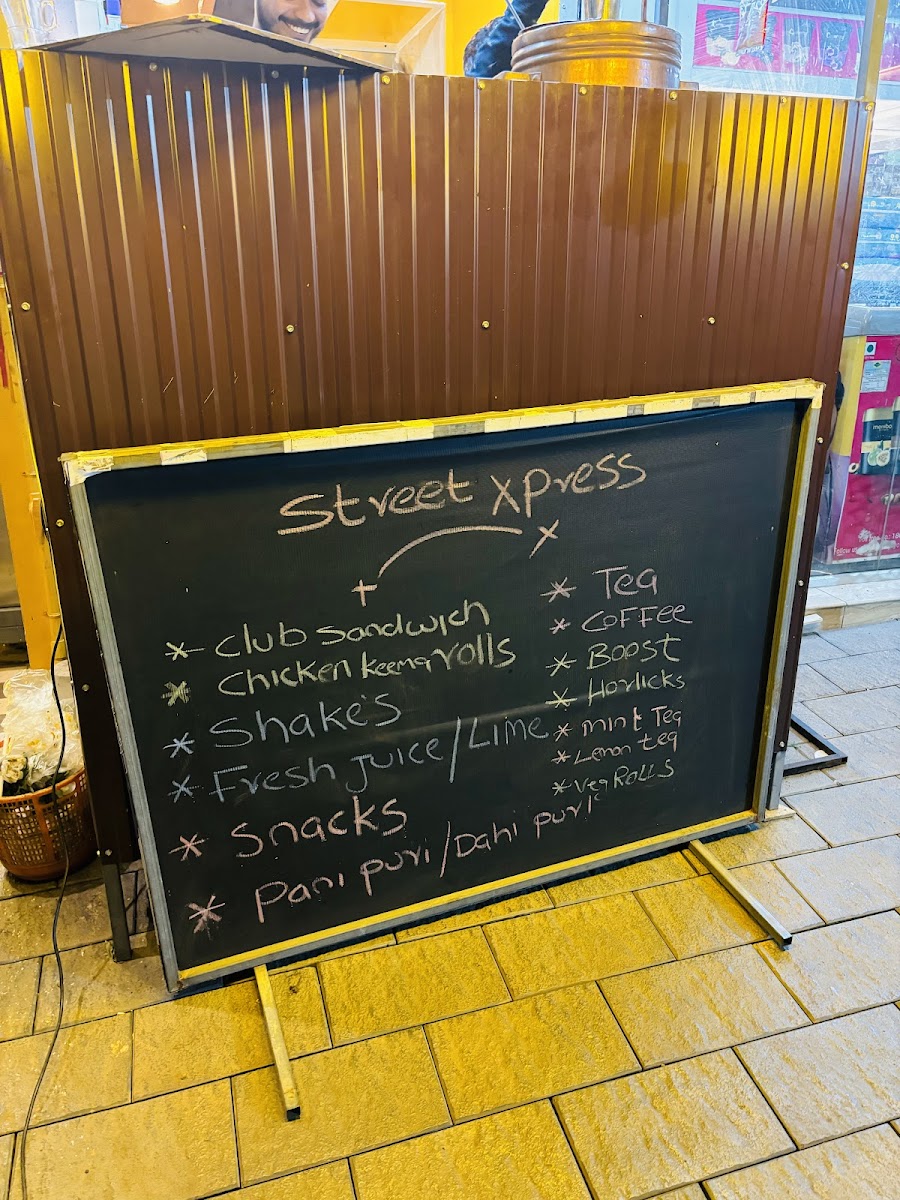 Street Xpress
* Club Sandwich
* Chicken keema rolls
* Shake's
* Fresh Juice/Lime
* Snacks
* Pani puri/Dahi puri
* Tea
* Coffee
* Boost
* Horlicks
* mint Tea
* Lemon tea
* Veg Rolls